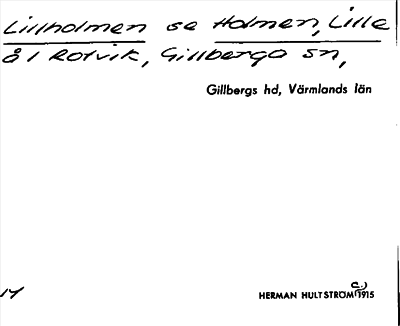 Lillholmen se Holmen, Lille
å 1 Rotvik, Gillberga sn,
Gillbergs hd, Värmlands län
14
HERMAN HULTSTRÖM (c.) 1915